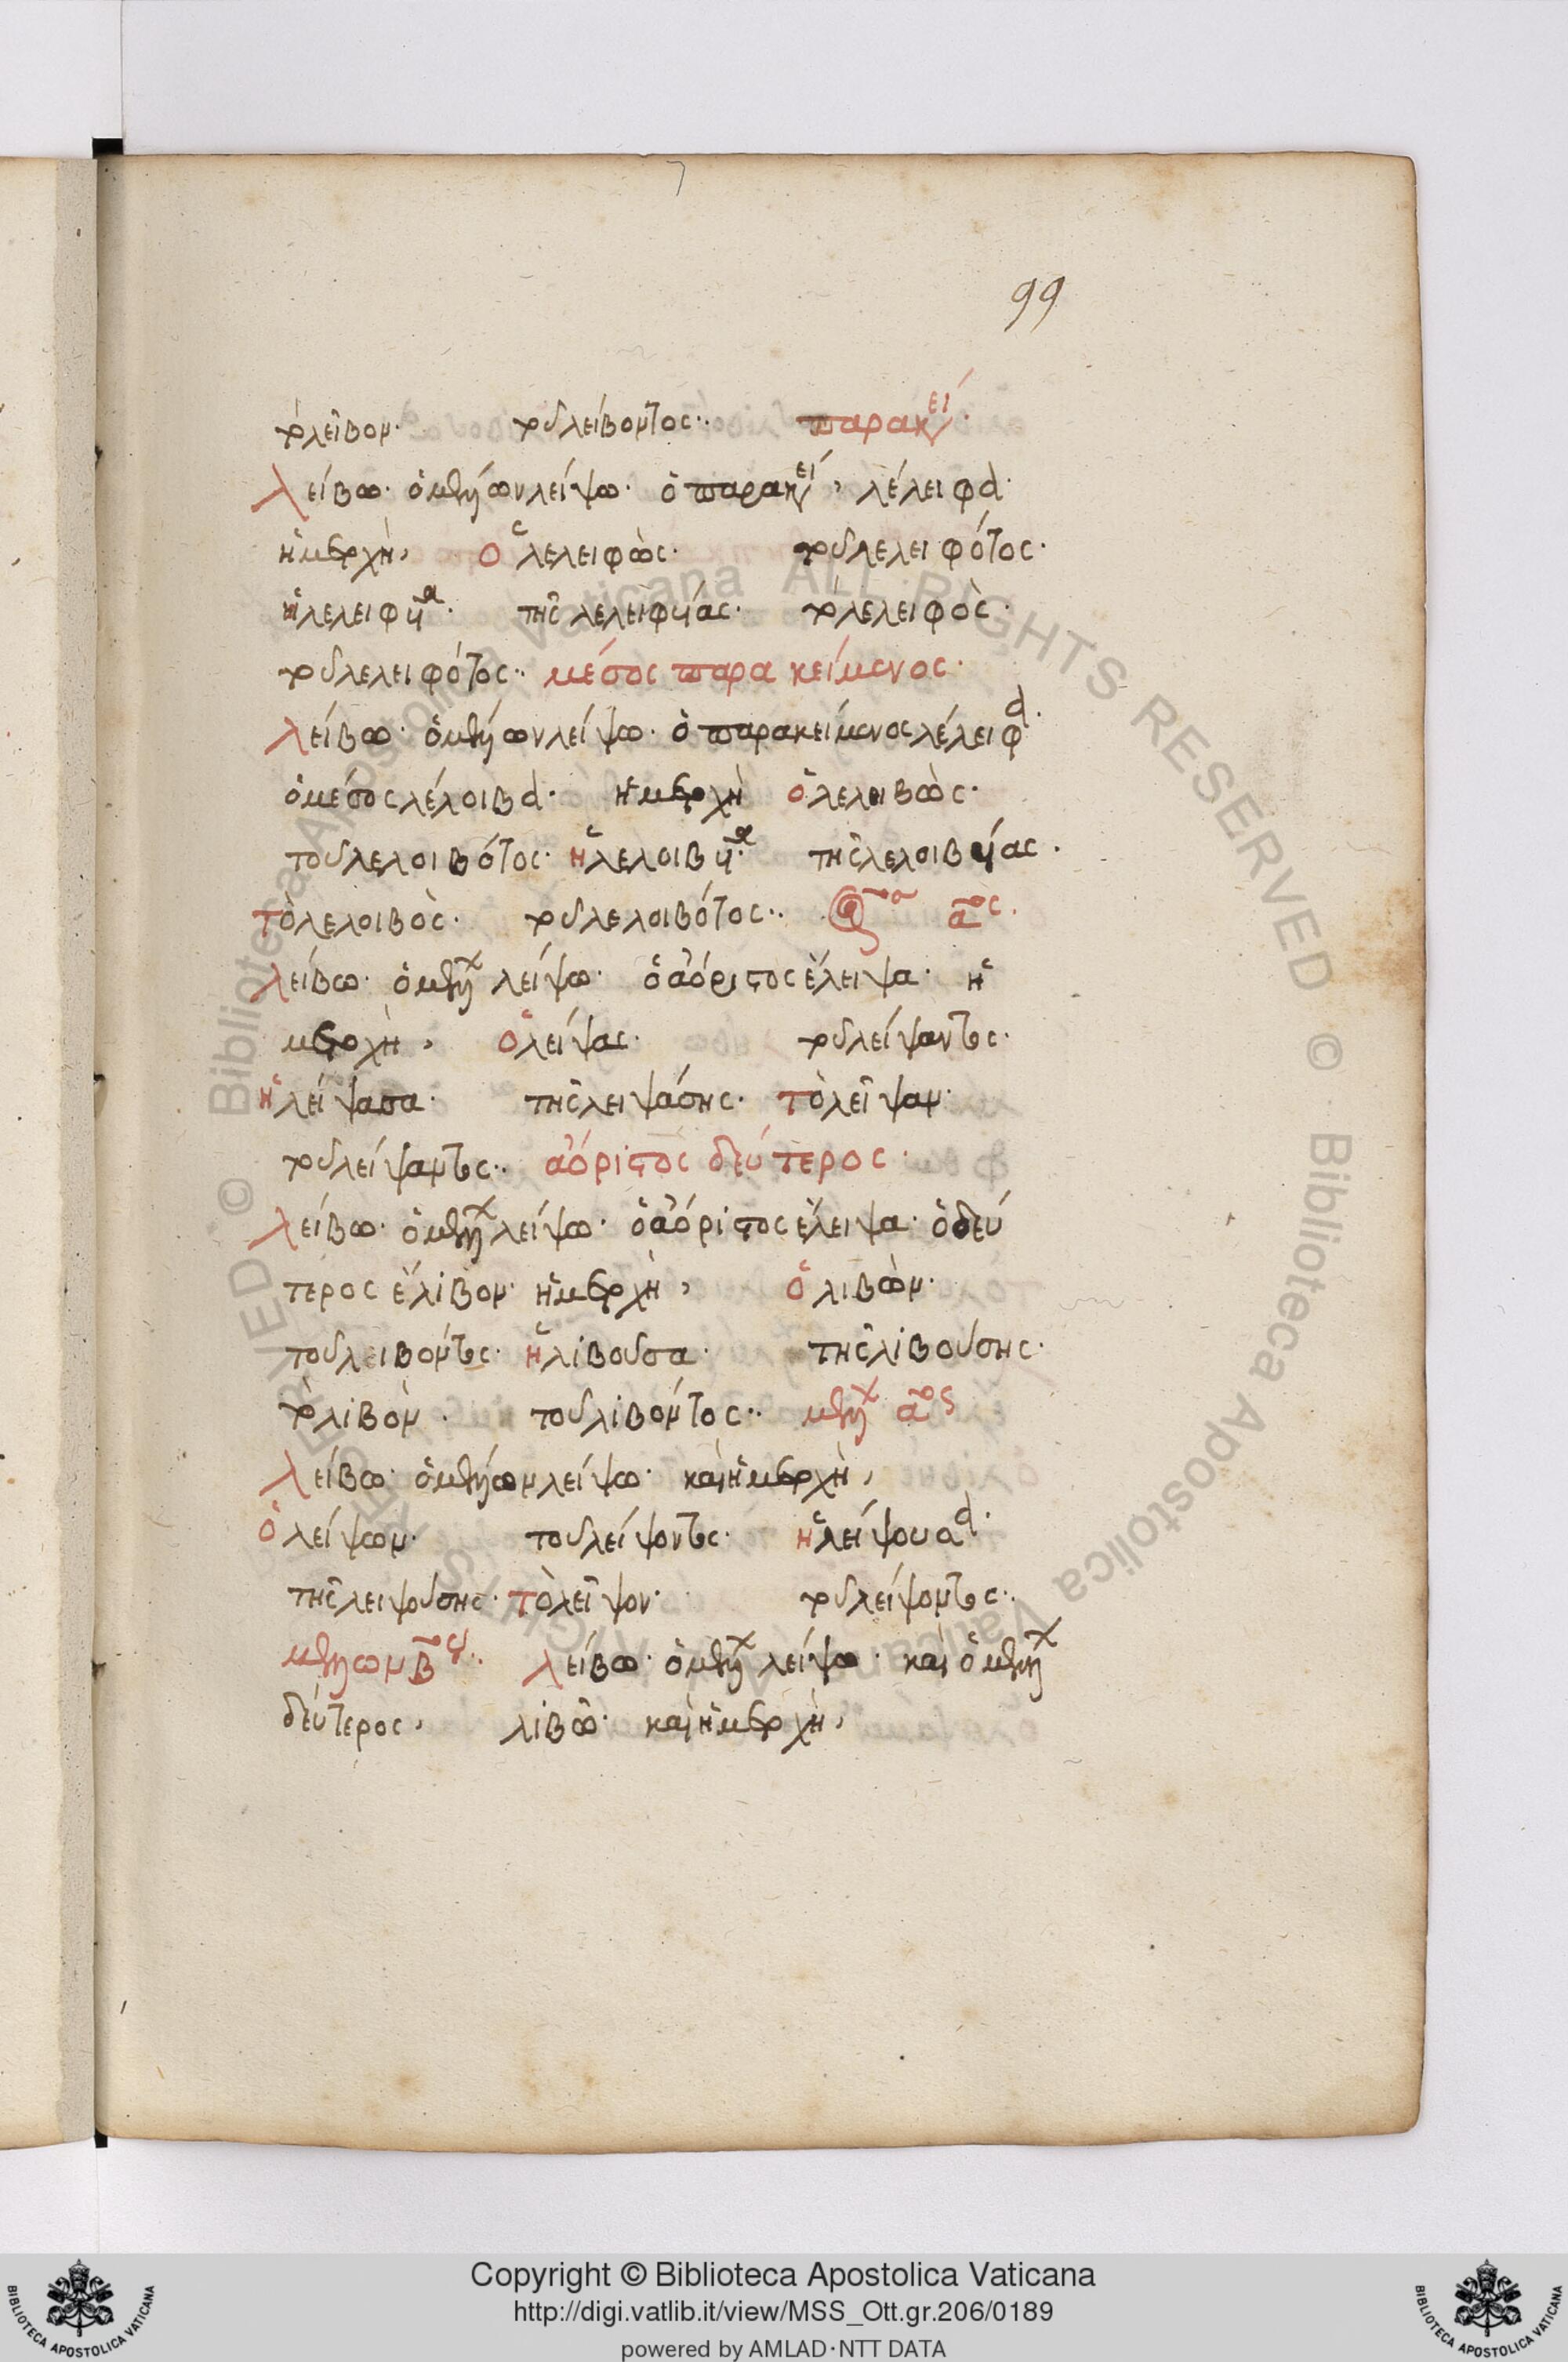 99
τὸ λεῖβον· τοῦ λείβοντος·· παρακεί·
λείβω· ὁ μέλλων λείψω· ὁ παρακεί, λέλειφα·
ἡ μετοχὴ, ὁ λελειφὼς· τοῦ λελειφότος·
ἡ λελειφυῖα· τῆς λελειφυίας· τὸ λελειφὸς·
τοῦ λελειφότος·· μέσος παρακείμενος·
λείβω· ὁ μέλλων λείψω· ὁ παρακείμενος λέλειφα·
ὁ μέσος λέλοιβα· ἡ μετοχὴ ὁ λελοιβὼς·
τοῦ λελοιβότος· ἡ λελοιβυῖα· τῆς λελοιβυίας·
τὸ λελοιβὸς· τοῦ λελοιβότος·· ᾱος·
λείβω· ὁ μέλλων λείψω· ὁ ἀόριστος ἔλειψα· ἡ
μετοχὴ, ὁ λείψας· τοῦ λείψαντος·
ἡ λείψασα· τῆς λειψάσης· τὸ λεῖψαν·
τοῦ λείψαντος·· ἀόριστος δεύτερος·
λείβω· ὁ μέλλων λείψω· ὁ ἀόριστος ἔλειψα· ὁ δεύ
τερος ἔλιβον· ἡ μετοχὴ, ὁ λιβὼν·
τοῦ λειβόντος· ἡ λιβοῦσα· τῆς λιβούσης·
τὸ λιβὸν· τοῦ λιβόντος·· μέλλων ᾱος
λείβω· ὁ μέλλων λείψω· καὶ ἡ μετοχὴ,
ὁ λείψων· τοῦ λείψοντος· ἡ λείψουσα·
τῆς λειψούσης· τὸ λεῖψον· τοῦ λείψοντος·
μέλλων β̄ος·· λείβω· ὁ μέλλων λείψω· καὶ ὁ μέλλων
δεύτερος, λιβῶ· καὶ ἡ μετοχὴ,
© Biblioteca Apostolica Vaticana ALL RIGHTS RESERVED © Biblioteca Apostolica Vaticana ALL RIGHTS RESERVED
Copyright © Biblioteca Apostolica Vaticana
http://digi.vatlib.it/view/MSS_Ott.gr.206/0189
powered by AMLAD·NTT DATA
BIBLIOTECA APOSTOLICA VATICANA
BIBLIOTECA APOSTOLICA VATICANA